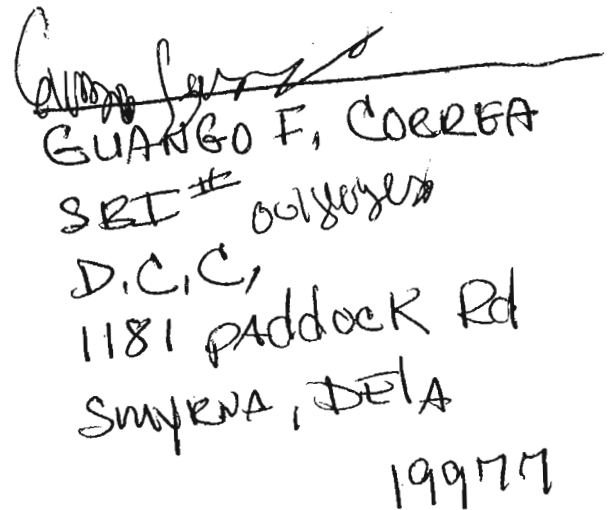 GUANGO F, CORREA
SBI#
D.C.C,
1181 PADDOCK Rd
SMYRNA, DElA
19977